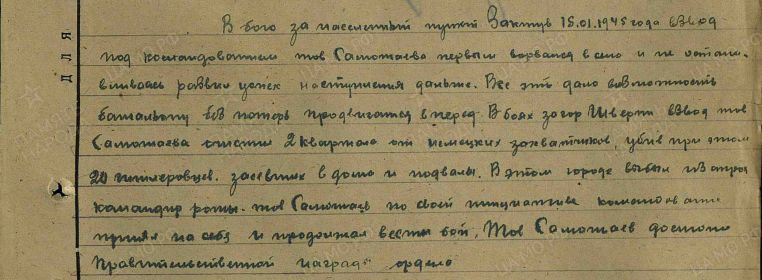 В бою за населенный пункт Зактув 15.01.1945 года взвод
под командованием тов Самотаева первым ворвался в село и не остана-
вливаясь развил успех наступления дальше. Все это дало возможность
батальону без потерь продвигатся вперед. В боях за гор Шверти взвод тов
Самотаева очистил 2 квартала от немецких захватчиков, убив при этом
20 гитлеровцев. засевших в доме и подвалы. В этом городе выбыл из строя
командир роты. тов Самотаев по своей инициативе командование
принял на себя и продолжал вести бой. Тов Самотаев достоин
правительственной награде ордена
ДЛЯ